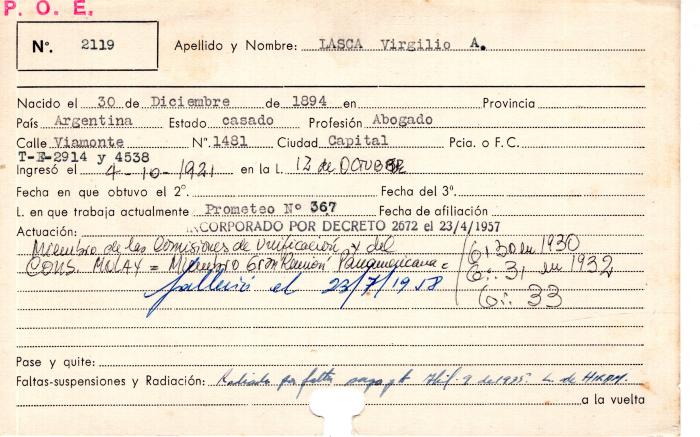 P. O. E.
N°. 2119
Apellido y Nombre: LASCA Virgilio A.
Nacido el 30 de Diciembre de 1894 en Provincia
País Argentina Estado casado Profesión Abogado
Calle Viamonte N°. 1481 Ciudad Capital Pcia. o F.C.
T-E-2914 y 4538
Ingresó el 4-10-1921 en la L. 12 de OCTUBRE
Fecha en que obtuvo el 2°. Fecha del 3°.
L. en que trabaja actualmente Prometeo N° 367 Fecha de afiliación
Actuación: INCORPORADO POR DECRETO 2672 el 23/4/1957
Miembro de las Comisiones de Unificación y del
CONS. MOLAY = Miembro Gran Reunión Panamericana =
G∴ 30 en 1930
G∴ 31 en 1932
G∴ 33
falleció el 23/7/1958
Pase y quite:
Faltas-suspensiones y Radiación: Radiado por falta pago Abril 9 de 1935 L. de HIRAM.
a la vuelta